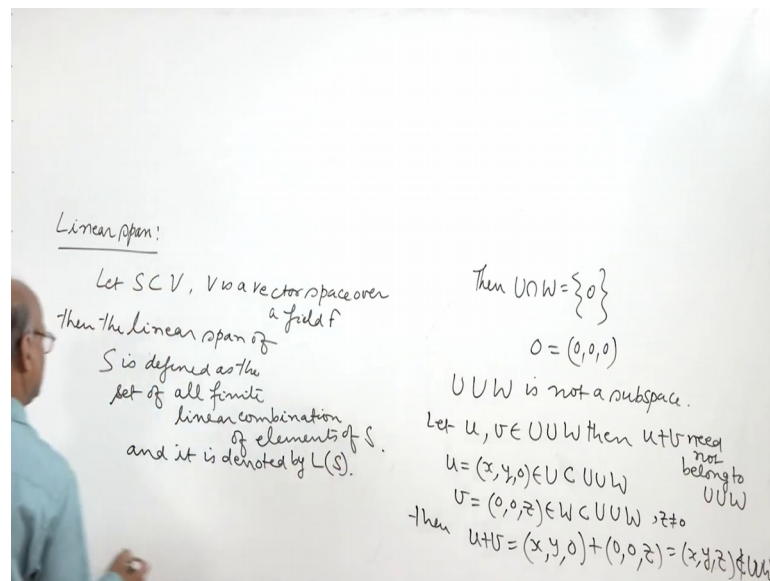 Linear span:
Let S⊂V, V is a vector space over
a field F
then the linear span of
S is defined as the
set of all finite
linear combination
of elements of S.
and it is denoted by L(S).
Then U∩W={0}
0=(0,0,0)
U∪W is not a subspace.
Let u, v∈U∪W then u+v need
not
belong to
U∪W
u=(x,y,0)∈U⊂U∪W
v=(0,0,z)∈W⊂U∪W, z≠0
then
u+v=(x,y,0)+(0,0,z)=(x,y,z)∉